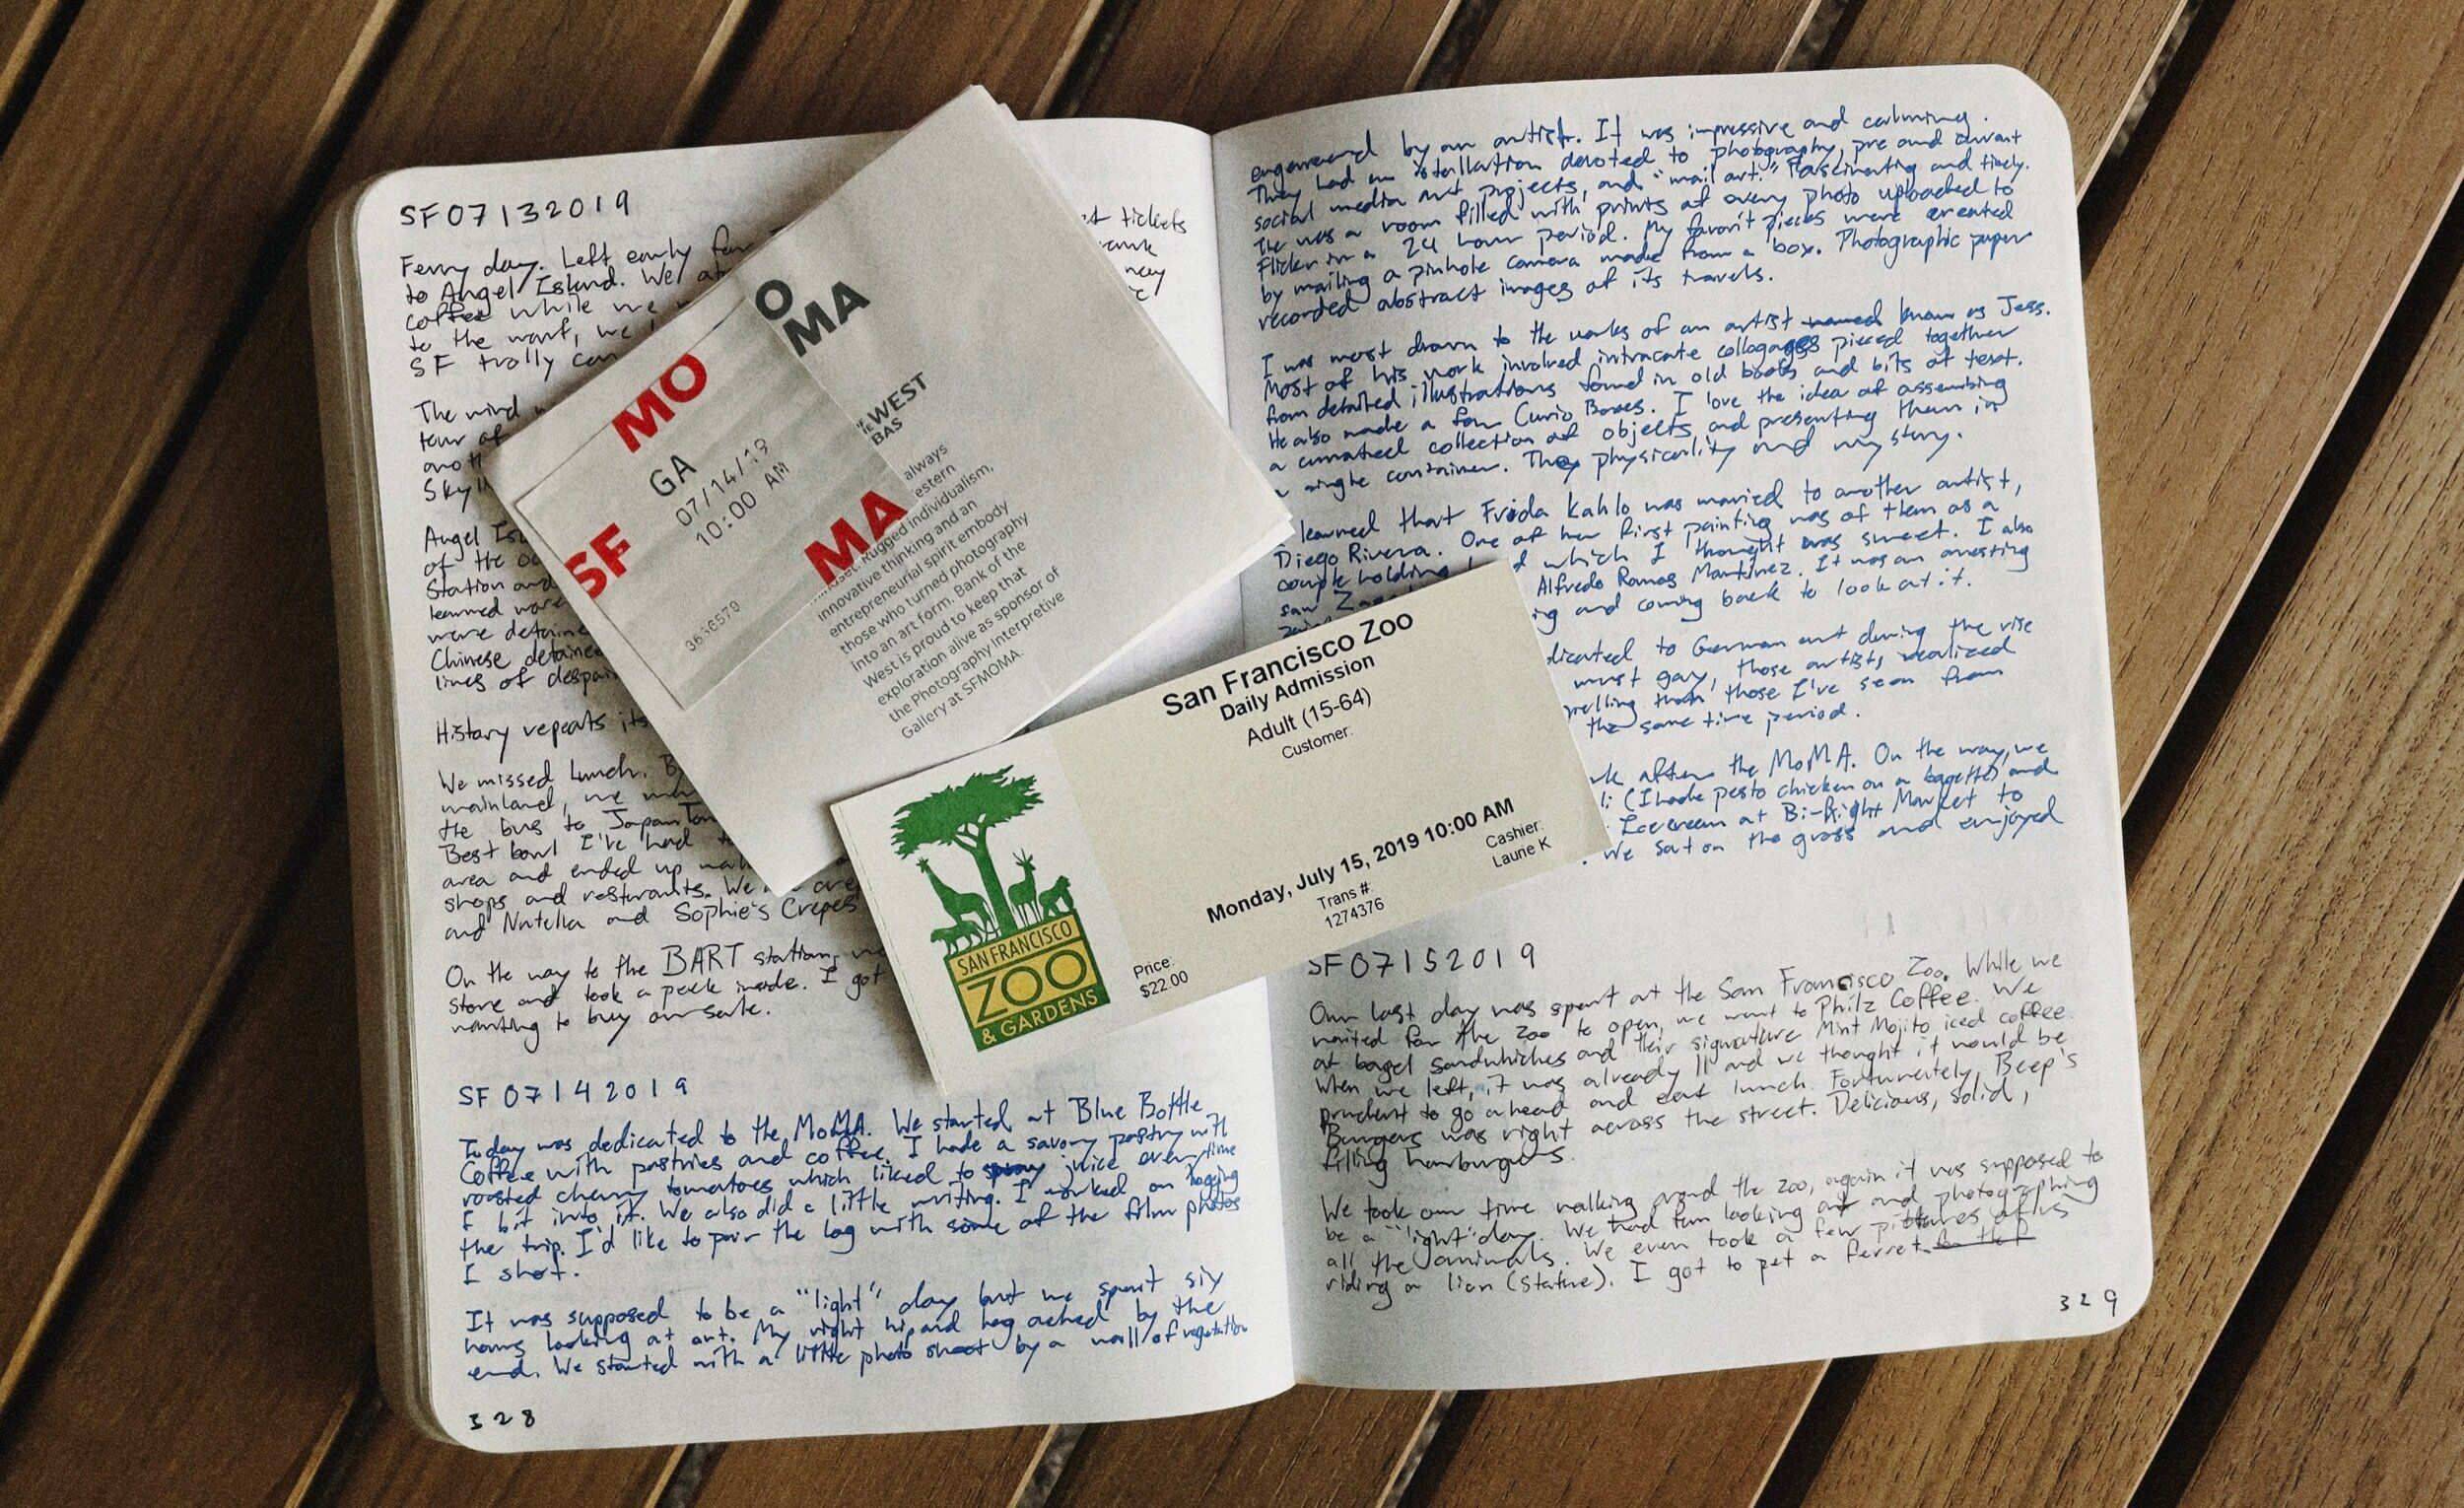 SF07132019
Ferry day. Left early for
to Angel Island. We
coffee while we
to the wait, we
SF trolly
The wind
tour of
Sky
Angel
of the
Station and
learned
were
Chinese detainee
lines of
History repeats
We missed lunch.
mainland, we
the bus to Japan
Best bowl I've had
area and ended up
shops and resturants. We
and Nutella and Sophie's Crepes
On the way to the BART station,
store and took a peek inside. I got
wanting to buy
tickets
SF07142019
Today was dedicated to the MoMA. We started at Blue Bottle
Coffee with pastries and coffee. I hade a savory pastry with
roasted cherry tomatoes which liked to spray juice every time
I bit into it. We also did a little writing. I worked on logging
the trip. I'd like to pair the log with some of the film photos
I shot.
It was supposed to be a "light" day but we spent six
hours looking at art. My right hip and leg ached by the
end. We started with a little photo shoot by a wall of vegetation
328
MO
SF
MA
GA
07/14/19
10:00 AM
3636579
O
MA
WEST
BAS
always
estern
Rugged individualism,
innovative thinking and an
entrepreneurial spirit embody
those who turned photography
into an art form. Bank of the
West is proud to keep that
exploration alive as sponsor of
the Photography Interpretive
Gallery at SFMOMA.
San Francisco Zoo
Daily Admission
Adult (15-64)
Customer:
Monday, July 15, 2019 10:00 AM
Trans #:
1274376
Cashier:
Laurie K
Price:
$22.00
SAN FRANCISCO
ZOO
& GARDENS
by an artist. It was impressive and calming.
They had an installation devoted to photography, pre and
social media art projects, and "mail art." Fascinating and
was a room filled with prints of every photo uploaded to
Flickr in a 24 hour period. My favorit pieces were created
by mailing a pinhole camera made from a box. Photographic paper
recorded abstract images of its travels.
I was most drawn to the works of an artist named known as Jess.
Most of his work involved intracate pieced together
from detailed illustrations found in old books and bits of text.
He also made a few Curio Boxes. I love the idea of assembing
a curated collection of objects and presenting them in
single container. physicality and mystery.
learned that Frida Kahlo was married to another artist,
Diego Rivera. One of her first painting was of them as a
couple holding which I thought was sweet. I also
saw Alfredo Ramos Martinez. It was an arresting
and coming back to look at it.
dicated to German art during the rise
those artists realized
than those I've seen from
the same time period.
after the MoMA. On the way, we
(I hade pesto chicken on a bagette) and
Icecream at Bi-Right Market to
We sat on the grass and enjoyed
SF07152019
Our last day was spent at the San Francisco Zoo. While we
waited for the zoo to open, we went to Philz Coffee. We
at bagel sandwhiches and their signature Mint Mojito iced coffee.
When we left, it was already 11 and we thought it would be
prudent to go ahead and eat lunch. Fortunately, Beep's
Burgers was right across the street. Delicious, solid,
filling hamburgers.
We took our time walking around the zoo, again it was supposed to
be a "light" day. We had fun looking at and photographing
all the animals. We even took a few pictures of us
riding a lion (statue). I got to pet a ferret.
329